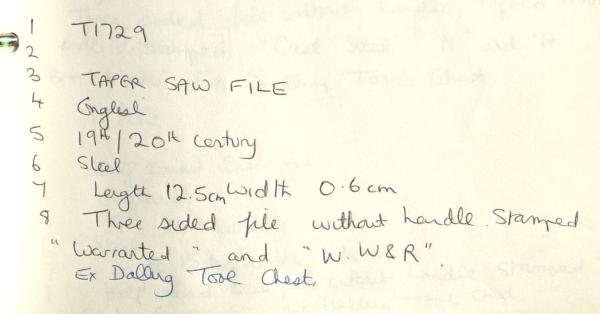 1 T1729
2
3 TAPER SAW FILE
4 English
5 19th/20th Century
6 Steel
7 Length 12.5cm Width 0.6cm
8 Three sided file without handle. Stamped
"Warranted" and "W. W & R".
Ex Dalling Tool Chest.